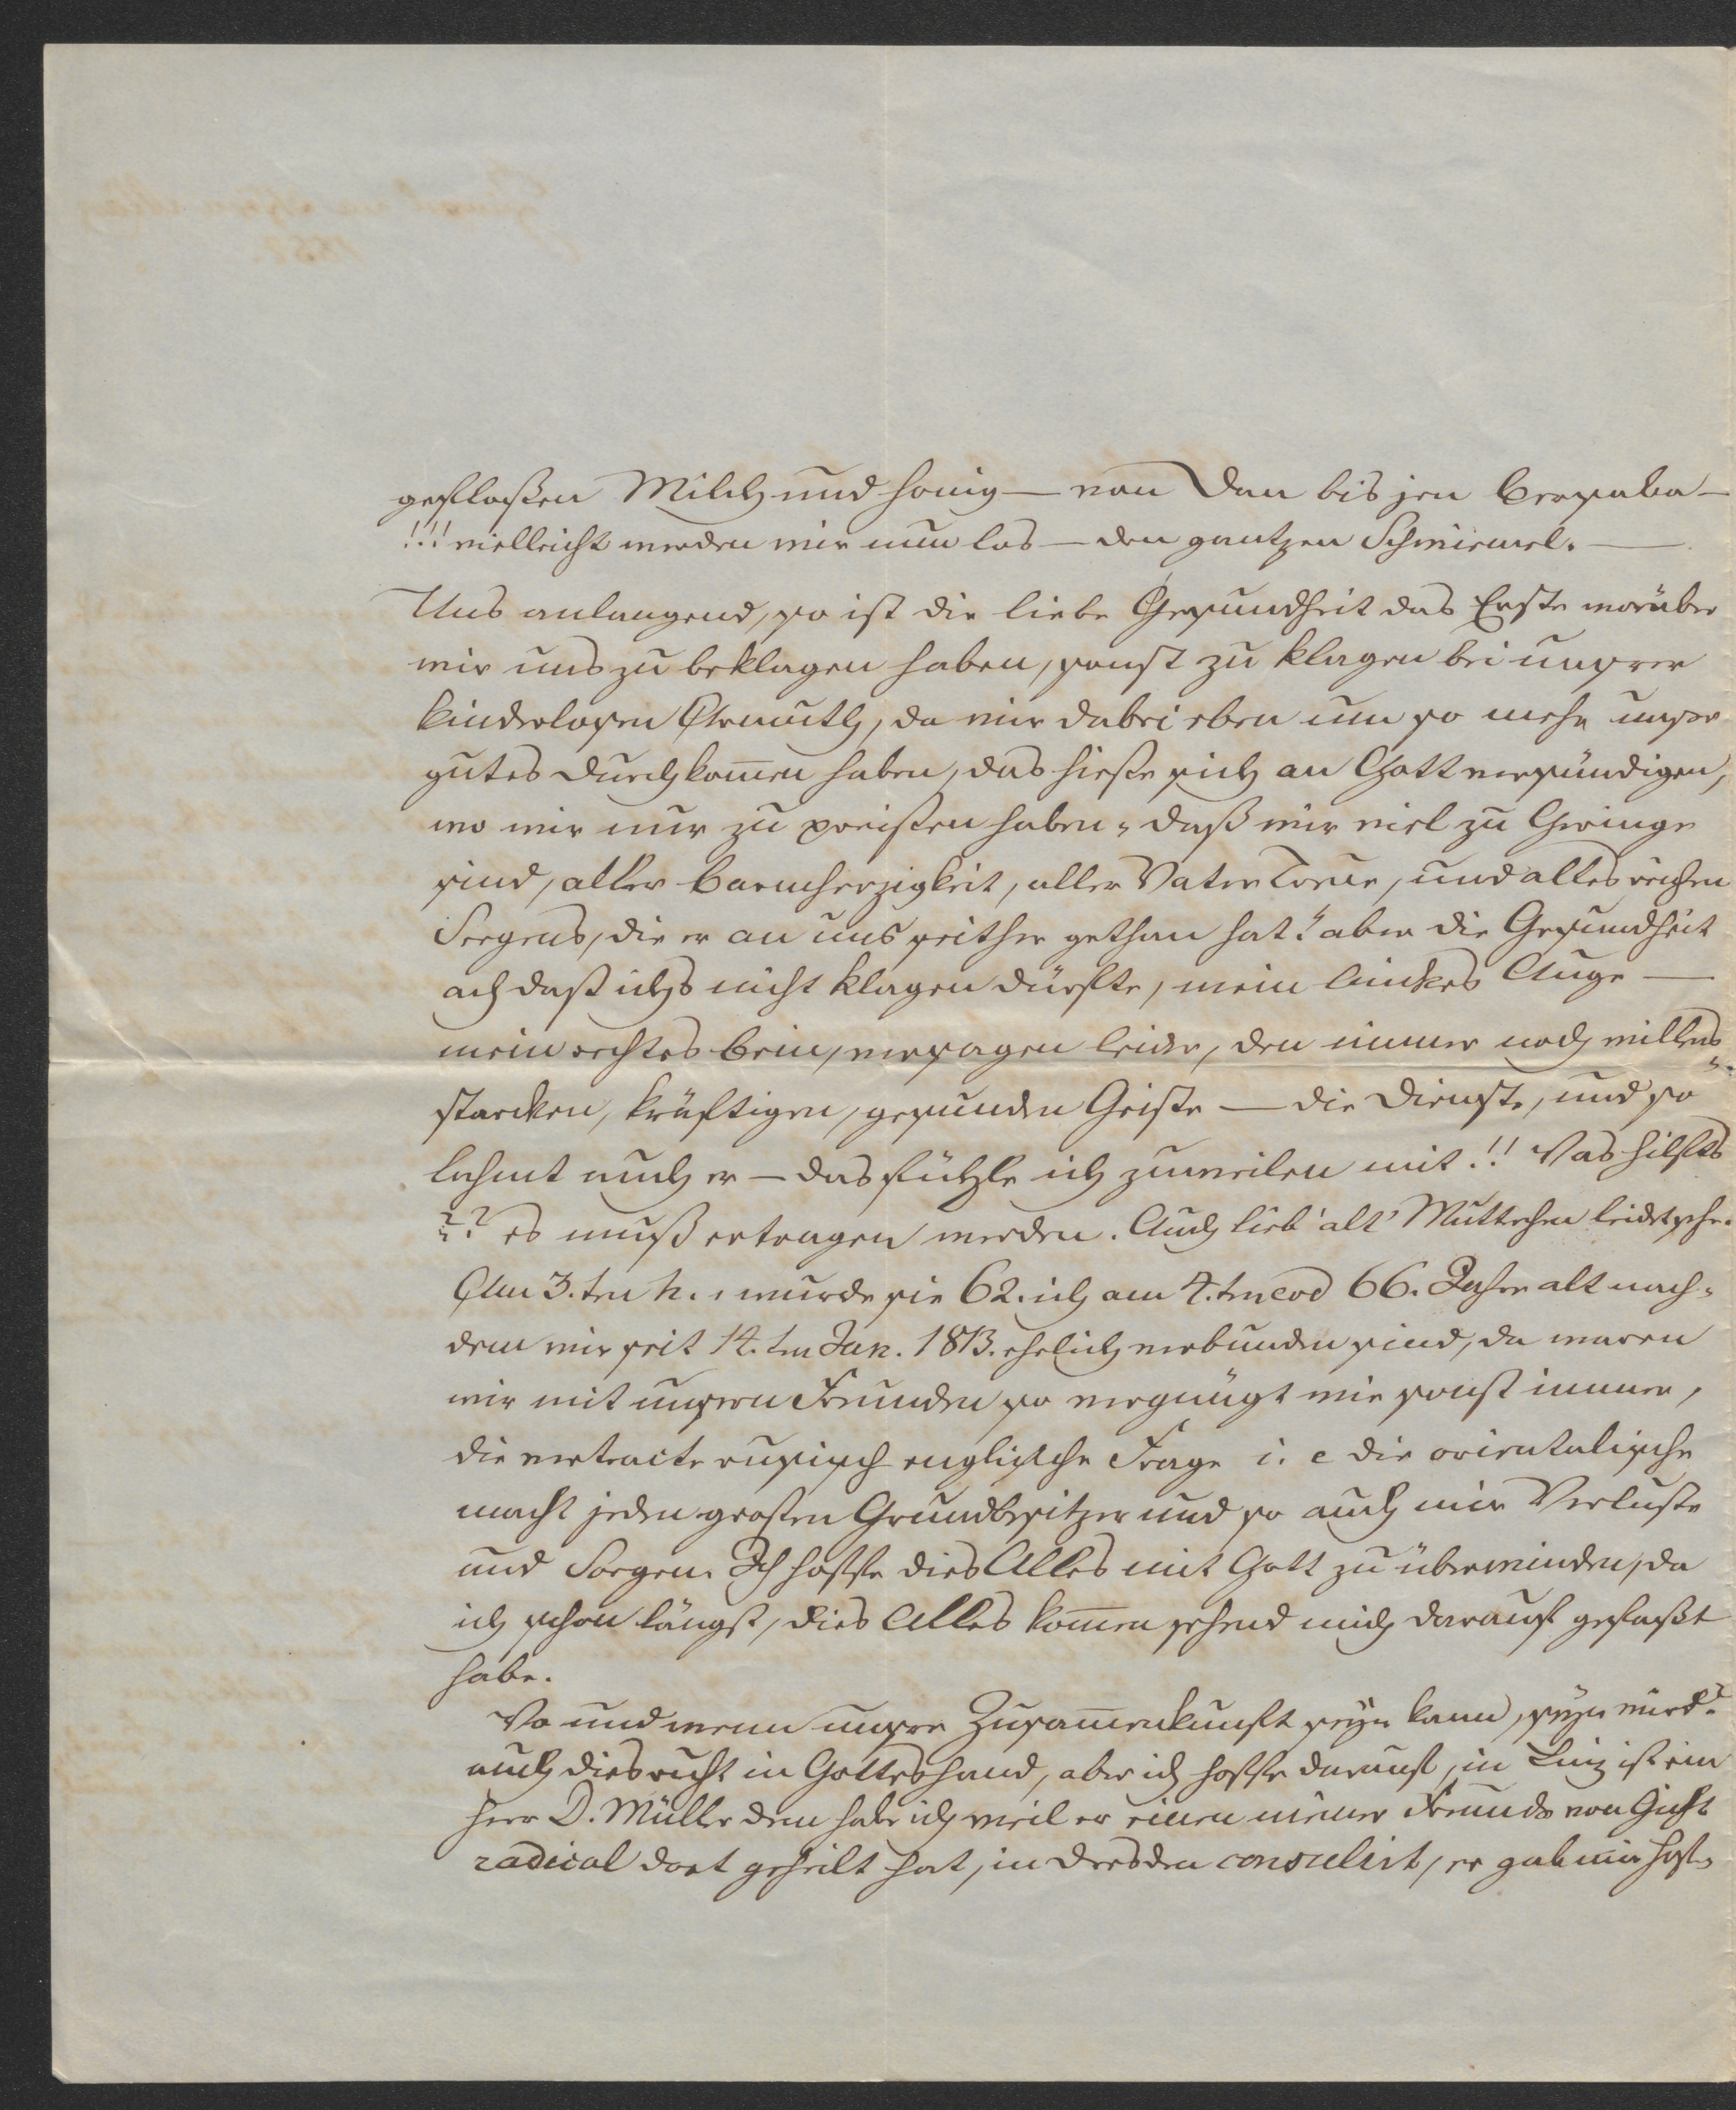 geflossen Milch und Honig — von Dan bis gen Bersaba —
!!! vielleicht werden wir nun los — den gantzen Schwiemel. —
Uns anlangend, so ist die liebe Gesundheit das Erste worüber
wir uns zu beklagen haben, sonst zu klagen bei unsrer
kinderlosen Armuth, da wir dabei eben um so mehr unser
gutes Durchkom̄en haben, das hieße sich an Gott versündigen,
wo wir nur zu preißen haben „daß wir viel zu Geringe
sind, aller Barmherzigkeit, aller Vater Treue, und alles reichen
Seegens, die er an uns seither gethan hat!" aber die Gesundheit
ach daß ichs nicht klagen dürfte, mein linkes Auge —
mein rechtes Bein, versagen leider, den immer noch willens
starcken, kräftigen, gesunden Geiste — die Dienste, und so
lahmt auch er — das fühle ich zuweilen mit!! Was hilfts
?? es muß ertragen werden. Auch lieb' alt' Muttchen leidet sehr.
Am 3. ten h., wurde sie 62. ich am 4. ten eod 66. Jahre alt nach-
dem wir seit 14. ten Jan. 1813. ehelich verbunden sind, da waren
wir mit unsern Freunden so vergnügt wie sonst immer,
die vertracte russisch englische Frage i. e die orientalische
macht jeden großen Grundbesitzer und so auch mir Verluste
und Sorgen. Ich hoffe dies Alles mit Gott zu überwinden, da
ich schon längst, dies Alles kom̄en sehend mich darauf gefaßt
habe.
Wo und wenn unsre Zusam̄enkunft seyn kann, seyn wird?
auch dies ruht in Gottes Hand, aber ich hoffe darauf, in Linz ist ein
Herr D. Müller dem habe ich weil er einen meiner Freunde von Gicht
radical dort geheilt hat, in Dresden consulirt, er gab mir Hoff-